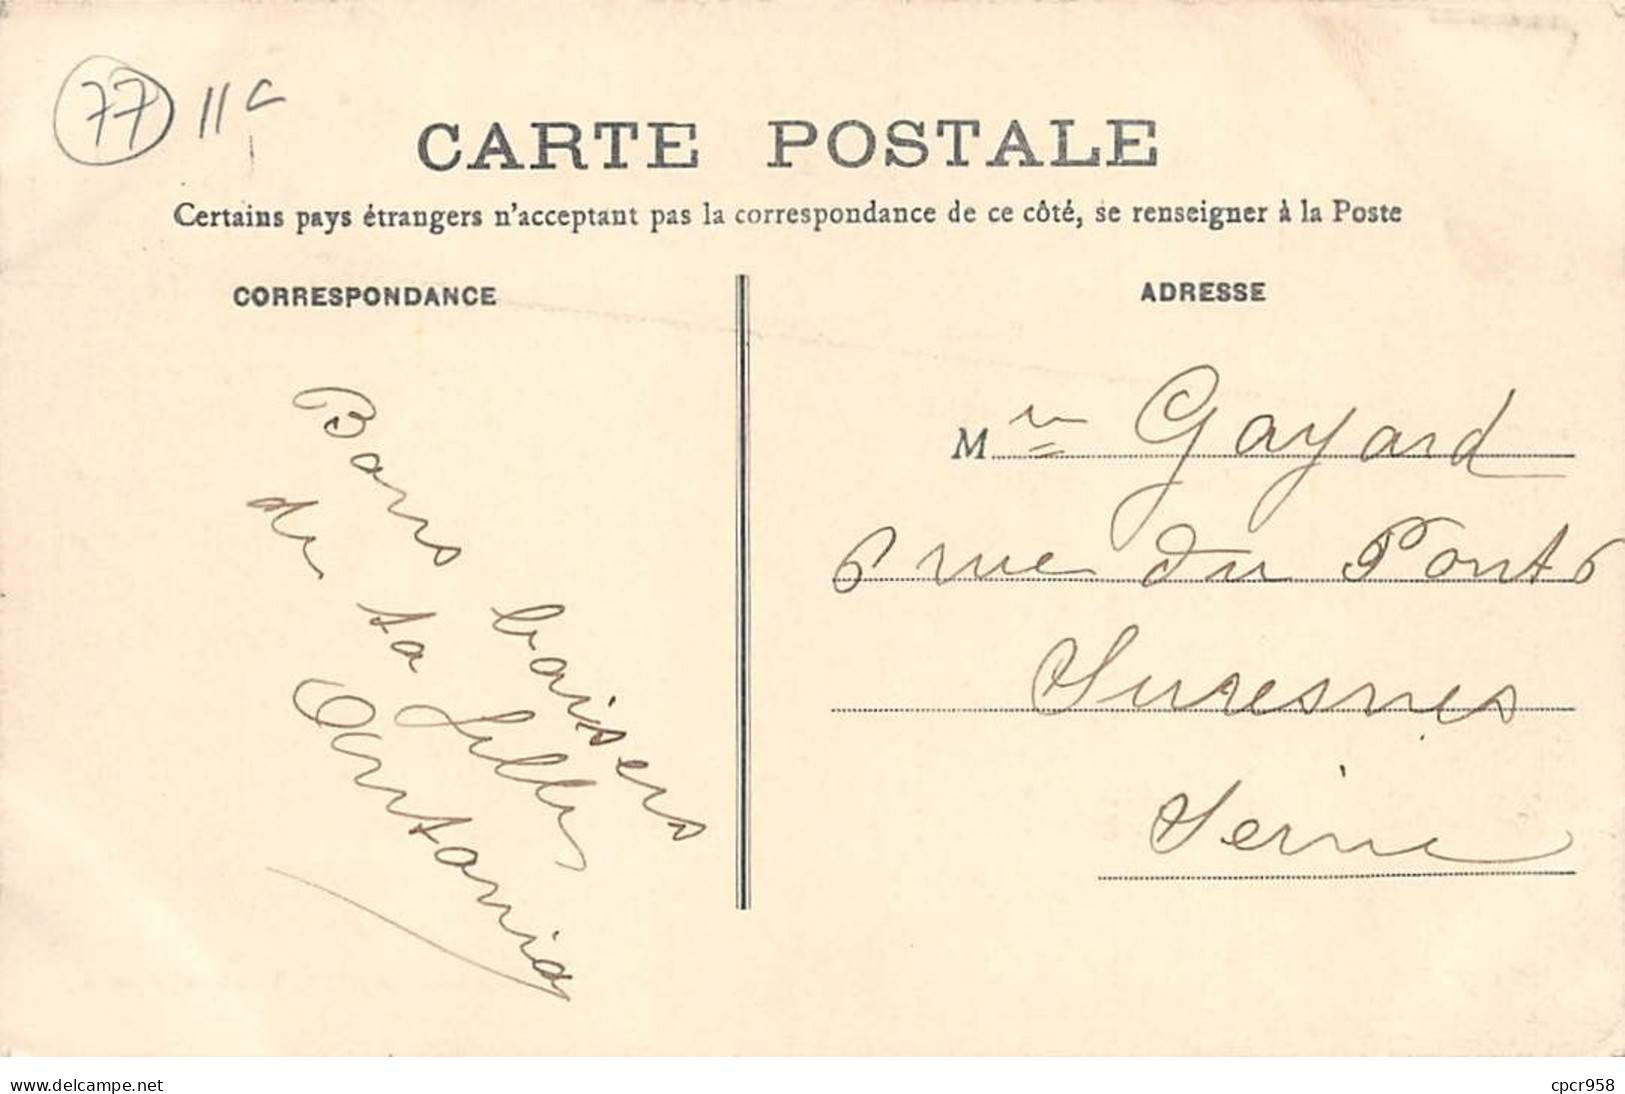 77 11c
CARTE POSTALE
Certains pays étrangers n'acceptant pas la correspondance de ce côté, se renseigner à la Poste
CORRESPONDANCE
Bons baisers
de ta fille
Antonia
ADRESSE
Mr Gayard
6 rue du Pont 6
Suresnes
Seine
www.delcampe.net
cpcr958